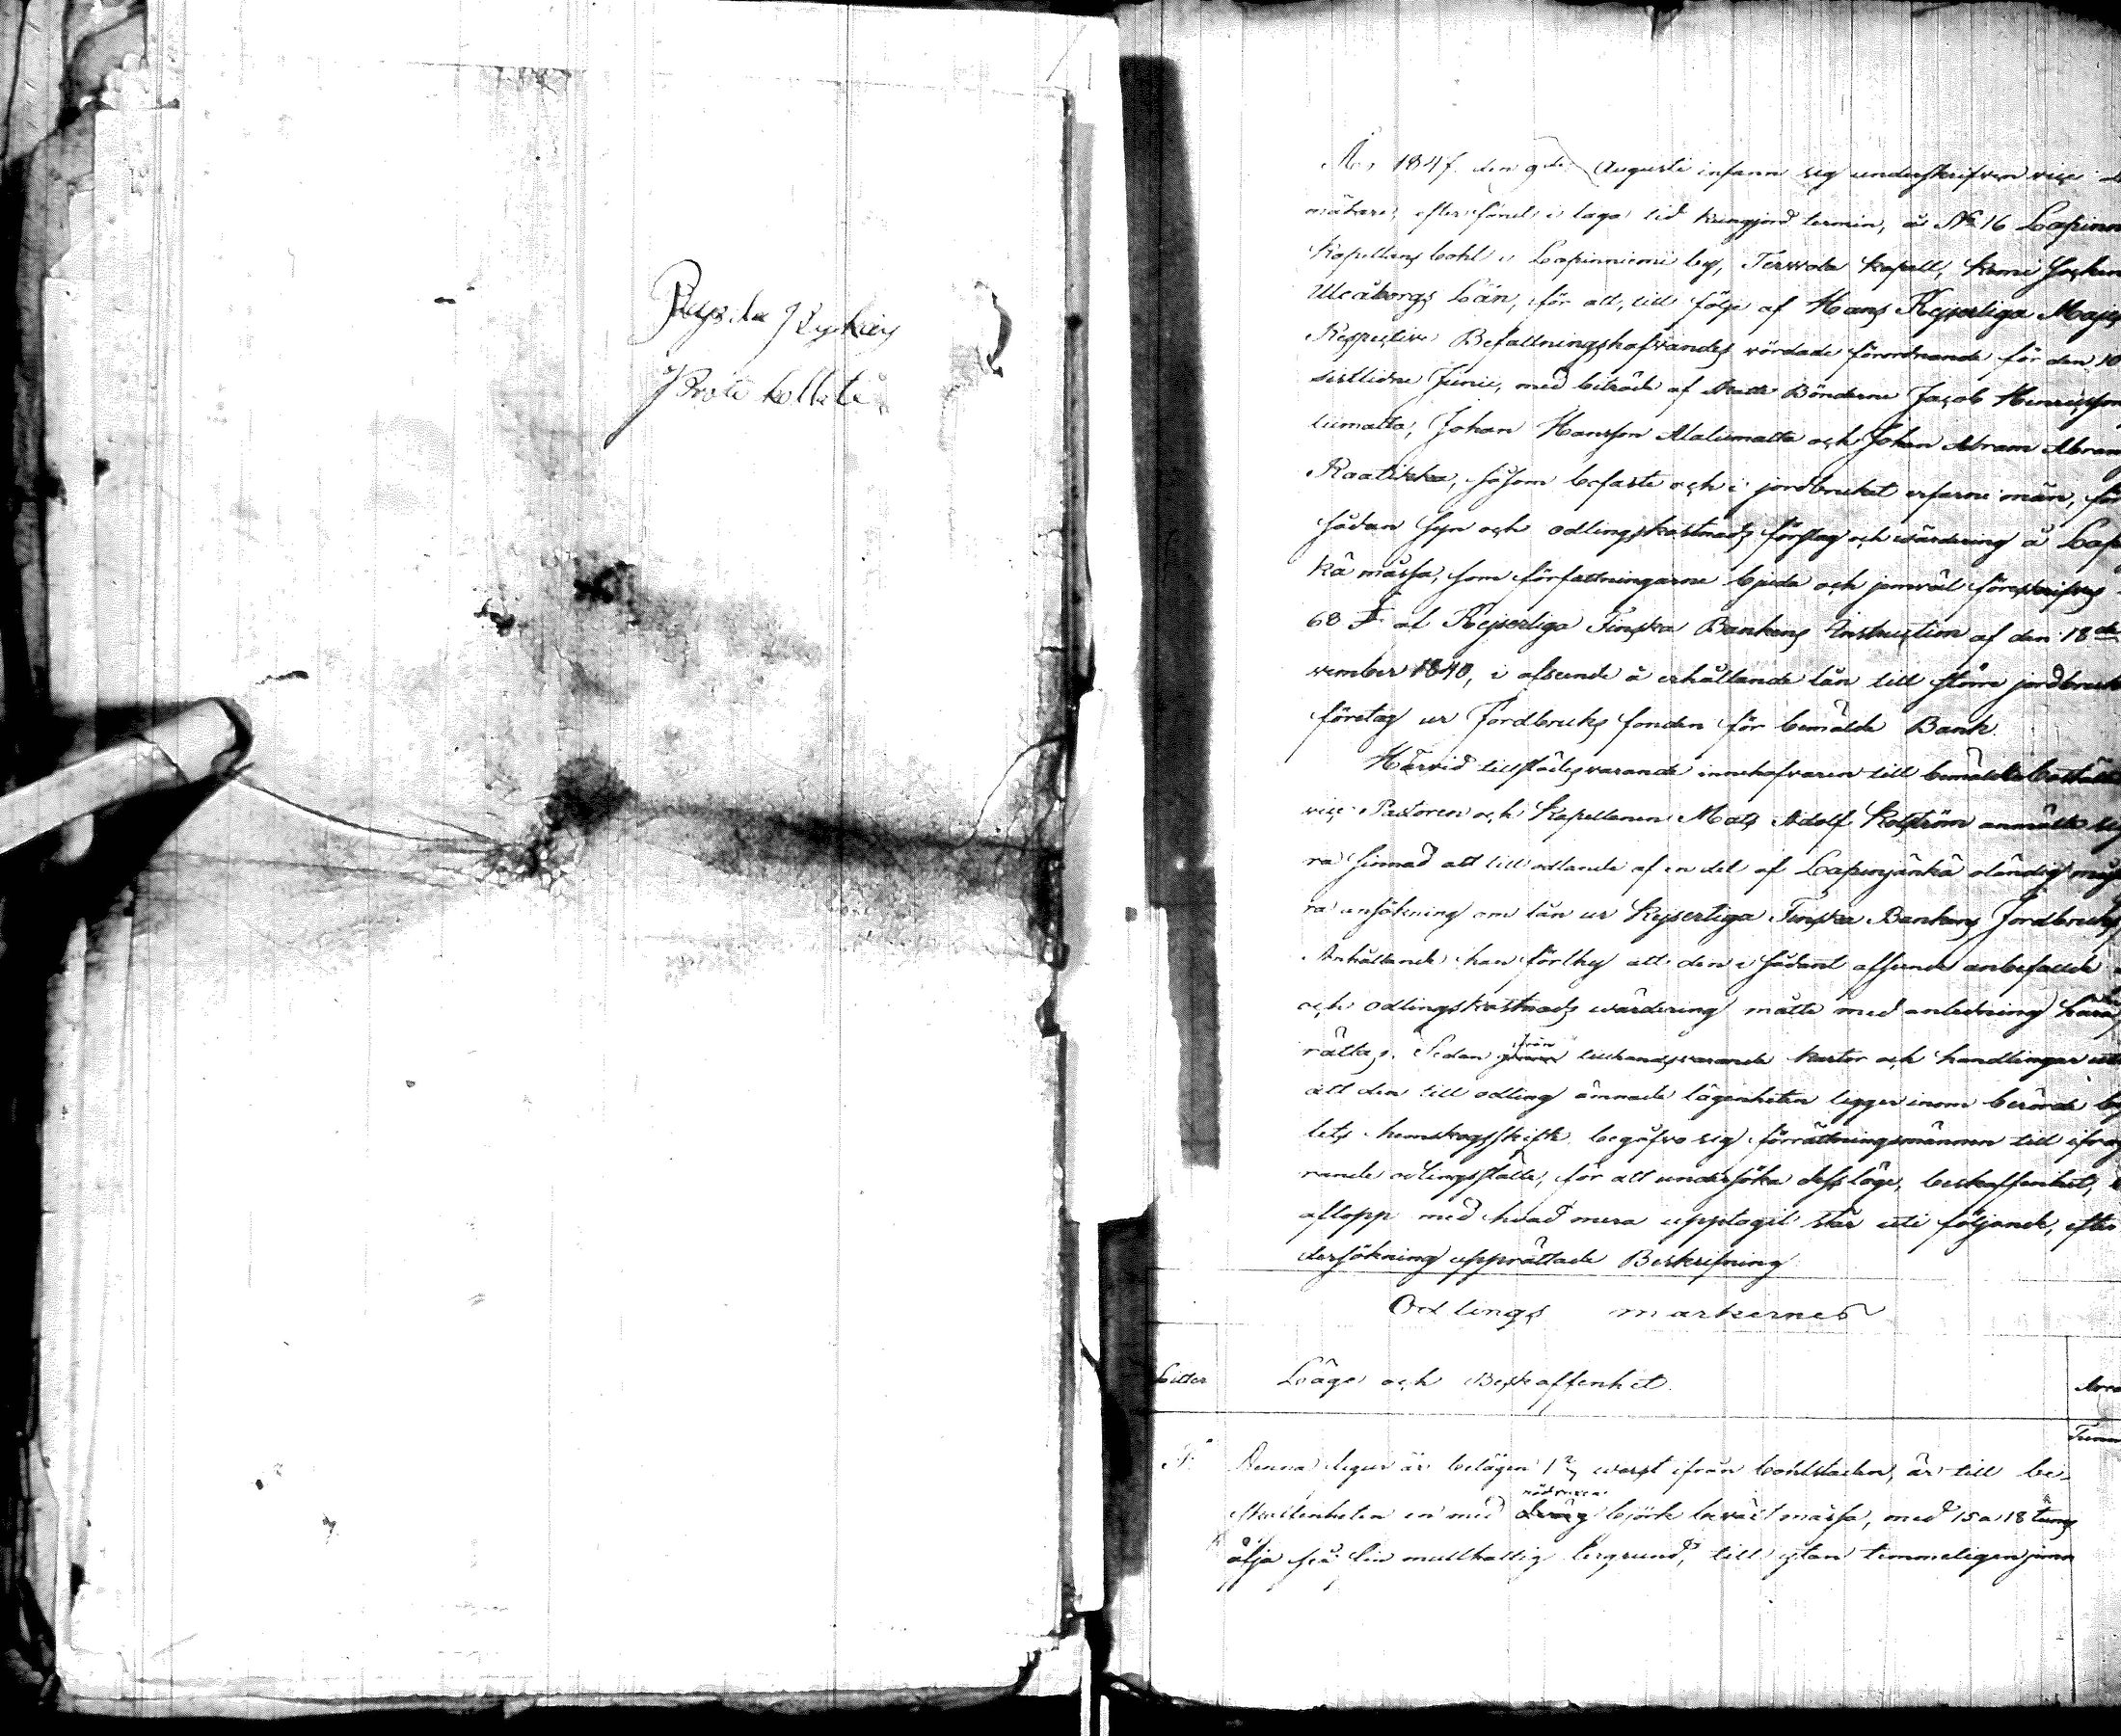 Protokollet
År 1847 den 9de Augusti infann sig underskrifven vice
mätare, efter förut i laga tid kungjord termin, å No 16 Lapinn
Kapellans bohl i Lapinniemi by, Terwola kapell, Kemi Socken
Uleåborgs Län, för att, till följe af Hans Kejserliga Majes
Respective Befallningshafvandes vördade förordnande för den 10
sistlidne Junii, med biträde af Skatte Bönderne Jacob Henricsson
liimatta, Johan Hansson Alaliimatta och Johan Abram Abram
Raatikka, såsom bofaste och i jordbruket erfarne män, för
sådan Syn och odlingskostnads förslag och värdering å Lap
kä mässa, som författningarne bjuda och jemväl föreskrifves
68 § af Kejserliga Finska Bankens Instruction af den 18de
vember 1840, i afseende å erhållande lån till större jordbruk
företag ur Jordbruks fonden för bemälde Bank.
Härvid tillstädesvarande innehafvaren till bemälde boställe
vice Pastoren och Kapellanen Mats Adolf anmälte sig
ra sinnad att till odlande af en del af Lapinjänkä oländig
ra ansökning om lån ur Kejserliga Finska Bankens Jordbruks
Anhållande han förthy att den i sådant afseende anbefallde
och odlingskostnads wärdering måtte med anledning häraf
rättas. Sedan ifrån tillhandsvarande kartor och handlingar
att den till odling ämnade lägenheten ligger inom berörde
lets hemskogsskifte begåfvo sig förrättningsmännen till ifråg
rande odlingsställe, för att undersöka dess läge, beskaffenhet,
aflopp med hvad mera upptagit står uti följande, efter
dersökning upprättade Beskrifning
Odlings markernes
Litter Läge och Beskaffenhet. Area
Tunn
Denna figur är belägen 1 werst ifrån bohlstaden, är till be-
skaffenheten en med björk beväxt mässa, med 15 a 18 tums
ålja på fin mullhaltig lergrund, till ytan temmeligen jemn